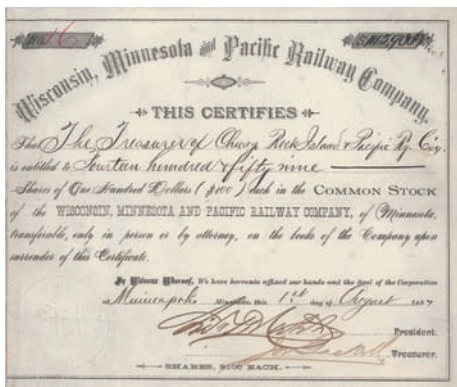 No 16
Wisconsin, Minnesota and Pacific Railway Company.
THIS CERTIFIES
That The Treasurer of Chicago Rock Island & Pacific Ry. Coy.
is entitled to Fourteen hundred & fifty nine
Shares of One Hundred Dollars ($100) each in the COMMON STOCK
of the WISCONSIN, MINNESOTA AND PACIFIC RAILWAY COMPANY, of Minnesota,
transferable, only in person or by attorney, on the books of the Company upon
surrender of this Certificate.
In Witness Whereof, We have hereunto affixed our hands and the Seal of the Corporation
at Minneapolis Minnesota this 1st day of August 1887
President.
Treasurer.
SHARES, $100 EACH.